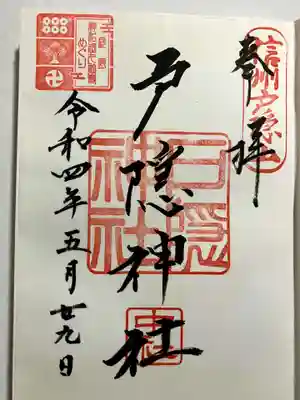 奉拝
信州戸隠
戸隠神社
戸隠
神社
令和四年五月廿九日
めぐり